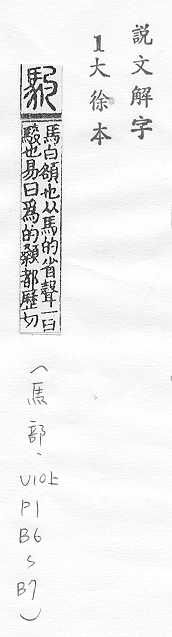 說文解字
1大徐本
馰
馬白頟也从馬的省聲一曰
駿也易曰爲的顙都歷切
(馬部、V10上
P1
B6
〜
B7)